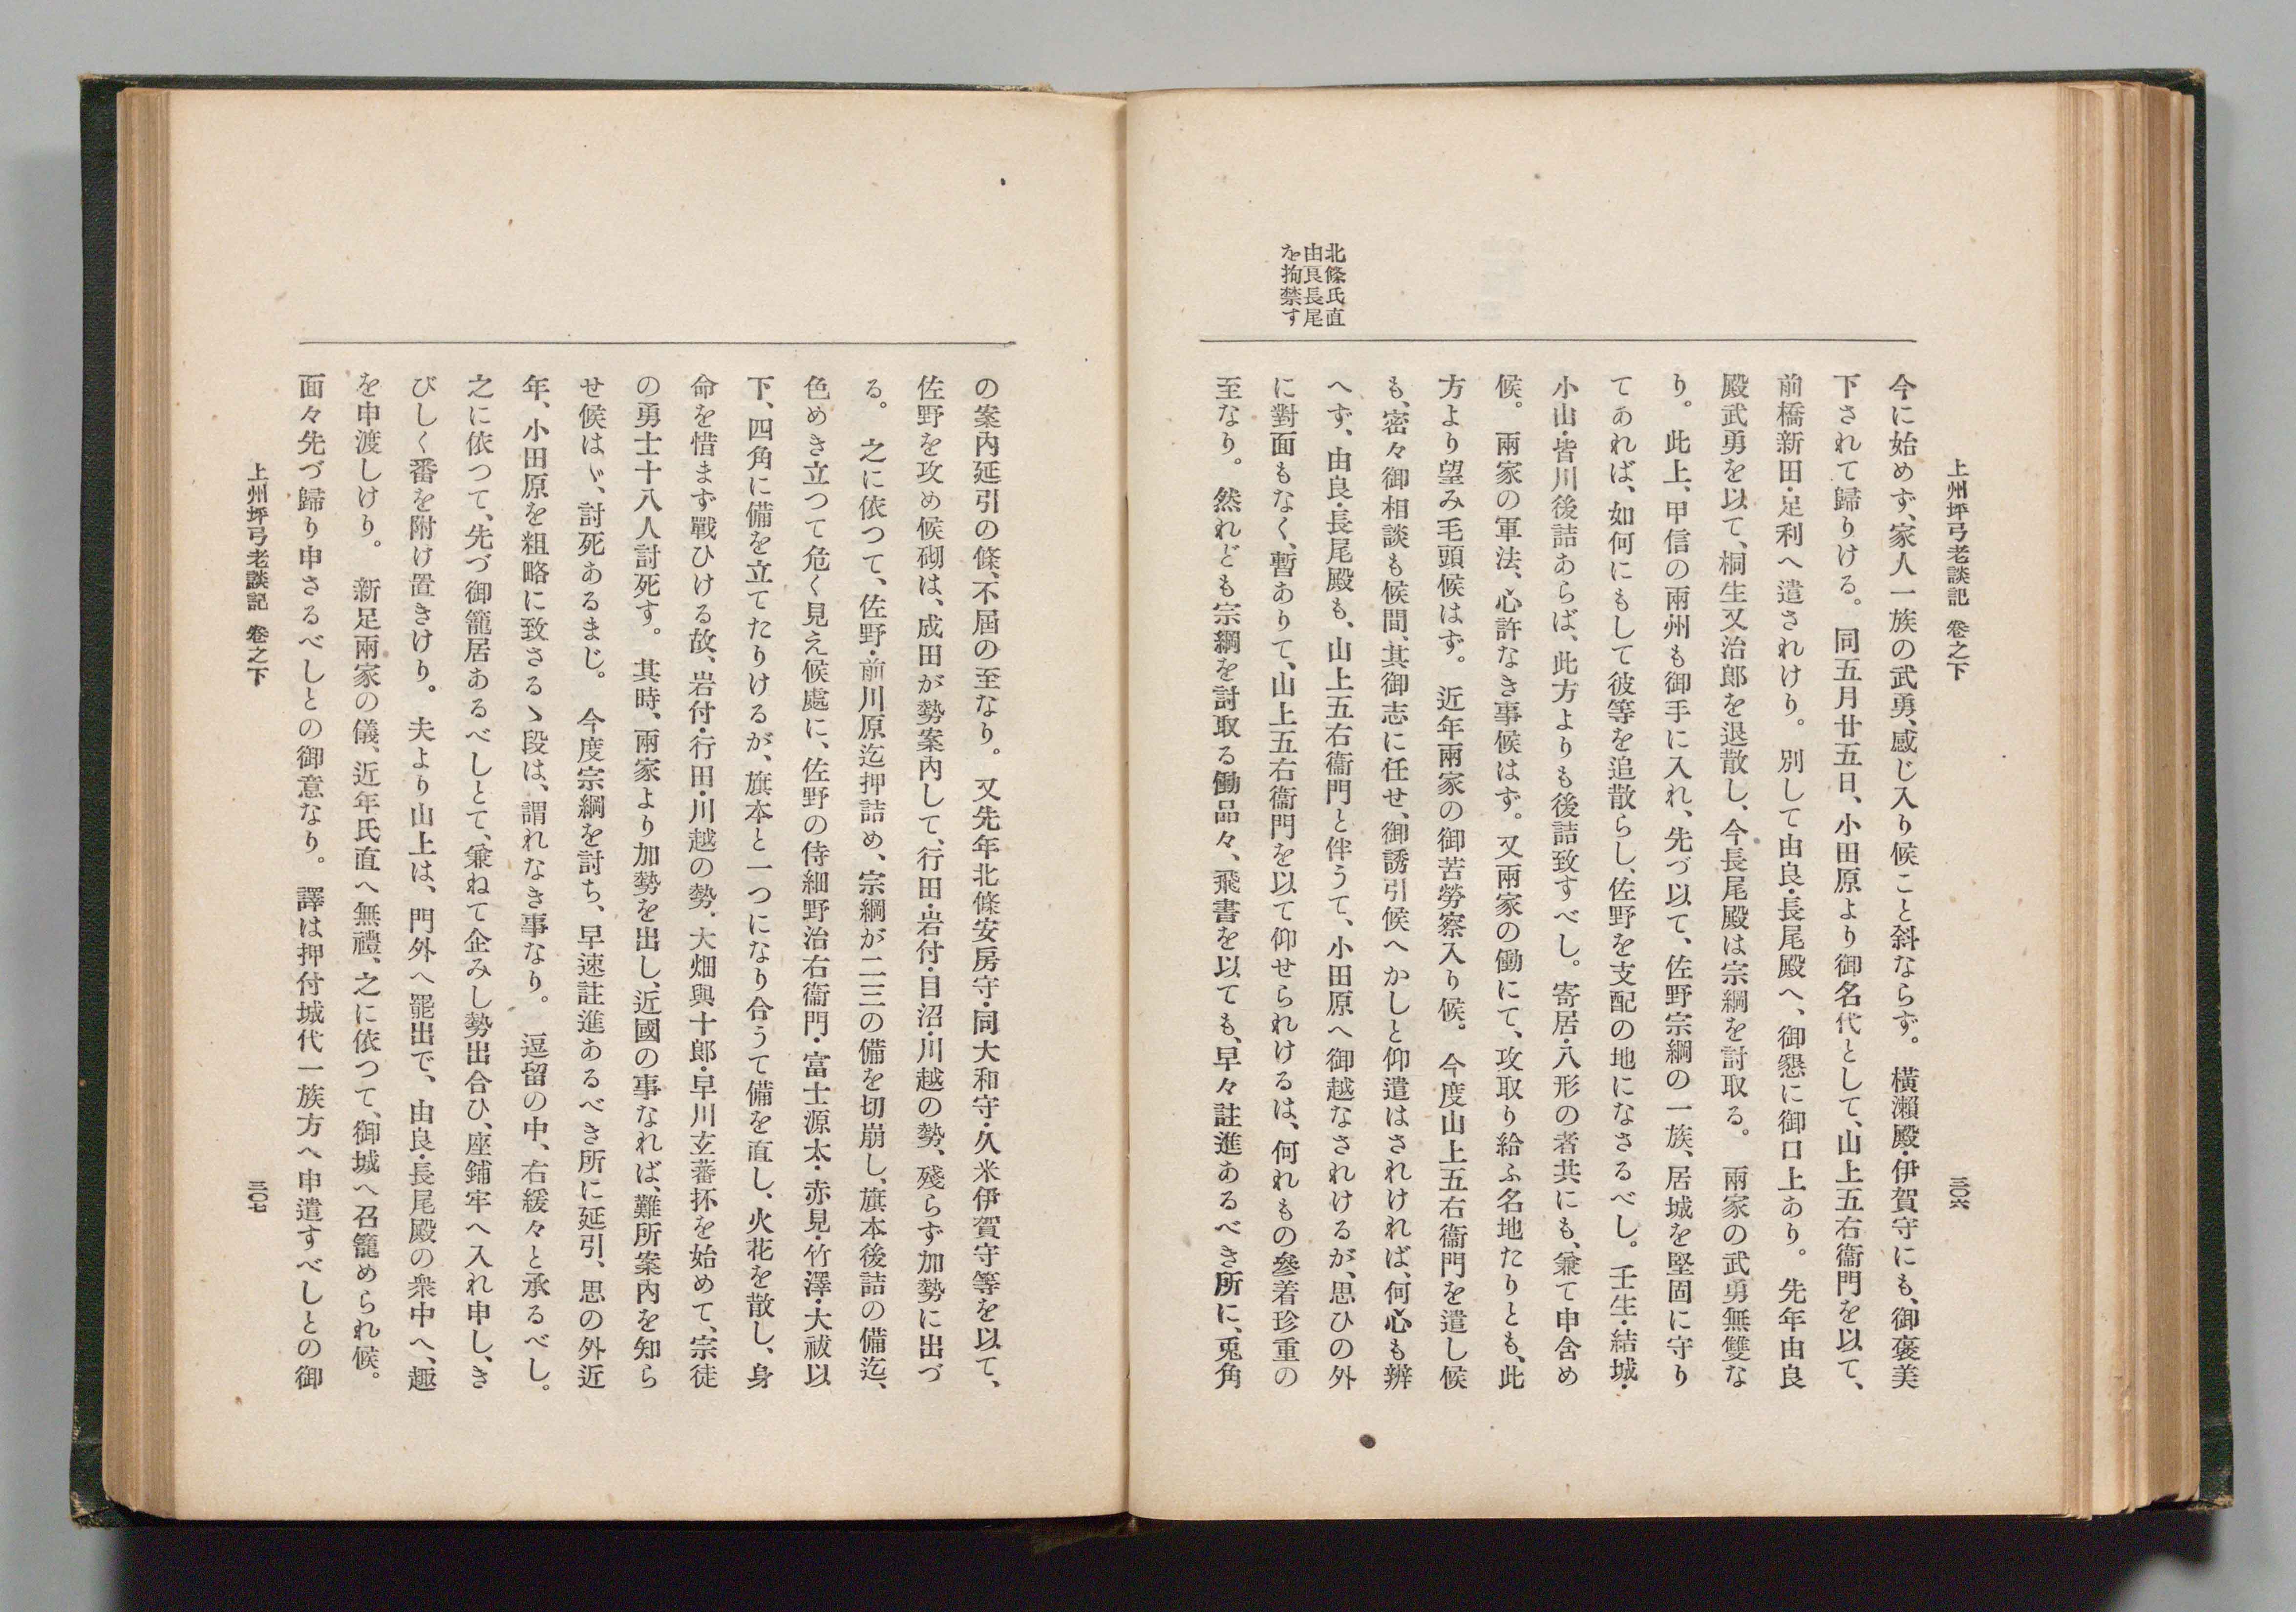 上州坪弓老談記　卷之下
三〇六
北條氏直
由良長尾
を拘禁す
今に始めず、家人一族の武勇、感じ入り候こと斜ならず。　橫瀨殿・伊賀守にも、御褒美
下されて歸りける。　同五月廿五日、小田原より御名代として、山上五右衞門を以て、
前橋新田・足利へ遣されけり。　別して由良・長尾殿へ、御懇に御口上あり。　先年由良
殿武勇を以て、桐生又治郎を退散し、今長尾殿は宗綱を討取る。　兩家の武勇無雙な
り。　此上、甲信の兩州も御手に入れ、先づ以て、佐野宗綱の一族、居城を堅固に守り
てあれば、如何にもして彼等を追散らし、佐野を支配の地になさるべし。　壬生・結城・
小山・皆川後詰あらば、此方よりも後詰致すべし。　寄居・八形の者共にも、兼て申含め
候。　兩家の軍法、心許なき事候はず。　又兩家の働にて、攻取り給ふ名地たりとも、此
方より望み毛頭候はず。　近年兩家の御苦勞察入り候。　今度山上五右衞門を遣し候
も、密々御相談も候間、其御志に任せ、御誘引候へかしと仰遣はされければ、何心も辨
へず、由良・長尾殿も、山上五右衞門と伴うて、小田原へ御越なされけるが、思ひの外
に對面もなく、暫ありて、山上五右衞門を以て仰せられけるは、何れもの參着珍重の
至なり。　然れども宗綱を討取る働品々、飛書を以ても、早々註進あるべき所に、兎角
の案內延引の條、不屆の至なり。　又先年北條安房守・同大和守・久米伊賀守等を以て、
佐野を攻め候砌は、成田が勢案內して、行田・岩付・目沼・川越の勢、殘らず加勢に出づ
る。　之に依つて、佐野・前川原迄押詰め、宗綱が二三の備を切崩し、旗本後詰の備迄、
色めき立つて危く見え候處に、佐野の侍細野治右衞門・富士源太・赤見・竹澤・大祓以
下、四角に備を立てたりけるが、旗本と一つになり合うて備を直し、火花を散し、身
命を惜まず戰ひける故、岩付・行田・川越の勢、大畑與十郎・早川玄蕃抔を始めて、宗徒
の勇士十八人討死す。　其時、兩家より加勢を出し、近國の事なれば、難所案內を知ら
せ候はゞ、討死あるまじ。　今度宗綱を討ち、早速註進あるべき所に延引、思の外近
年、小田原を粗略に致さるゝ段は、謂れなき事なり。　逗留の中、右緩々と承るべし。
之に依つて、先づ御籠居あるべしとて、兼ねて企みし勢出合ひ、座鋪牢へ入れ申し、き
びしく番を附け置きけり。　夫より山上は、門外へ罷出で、由良・長尾殿の衆中へ、趣
を申渡しけり。　新足兩家の儀、近年氏直へ無禮、之に依つて、御城へ召籠められ候。
面々先づ歸り申さるべしとの御意なり。　譯は押付城代一族方へ申遣すべしとの御
上州坪弓老談記　卷之下
三〇七